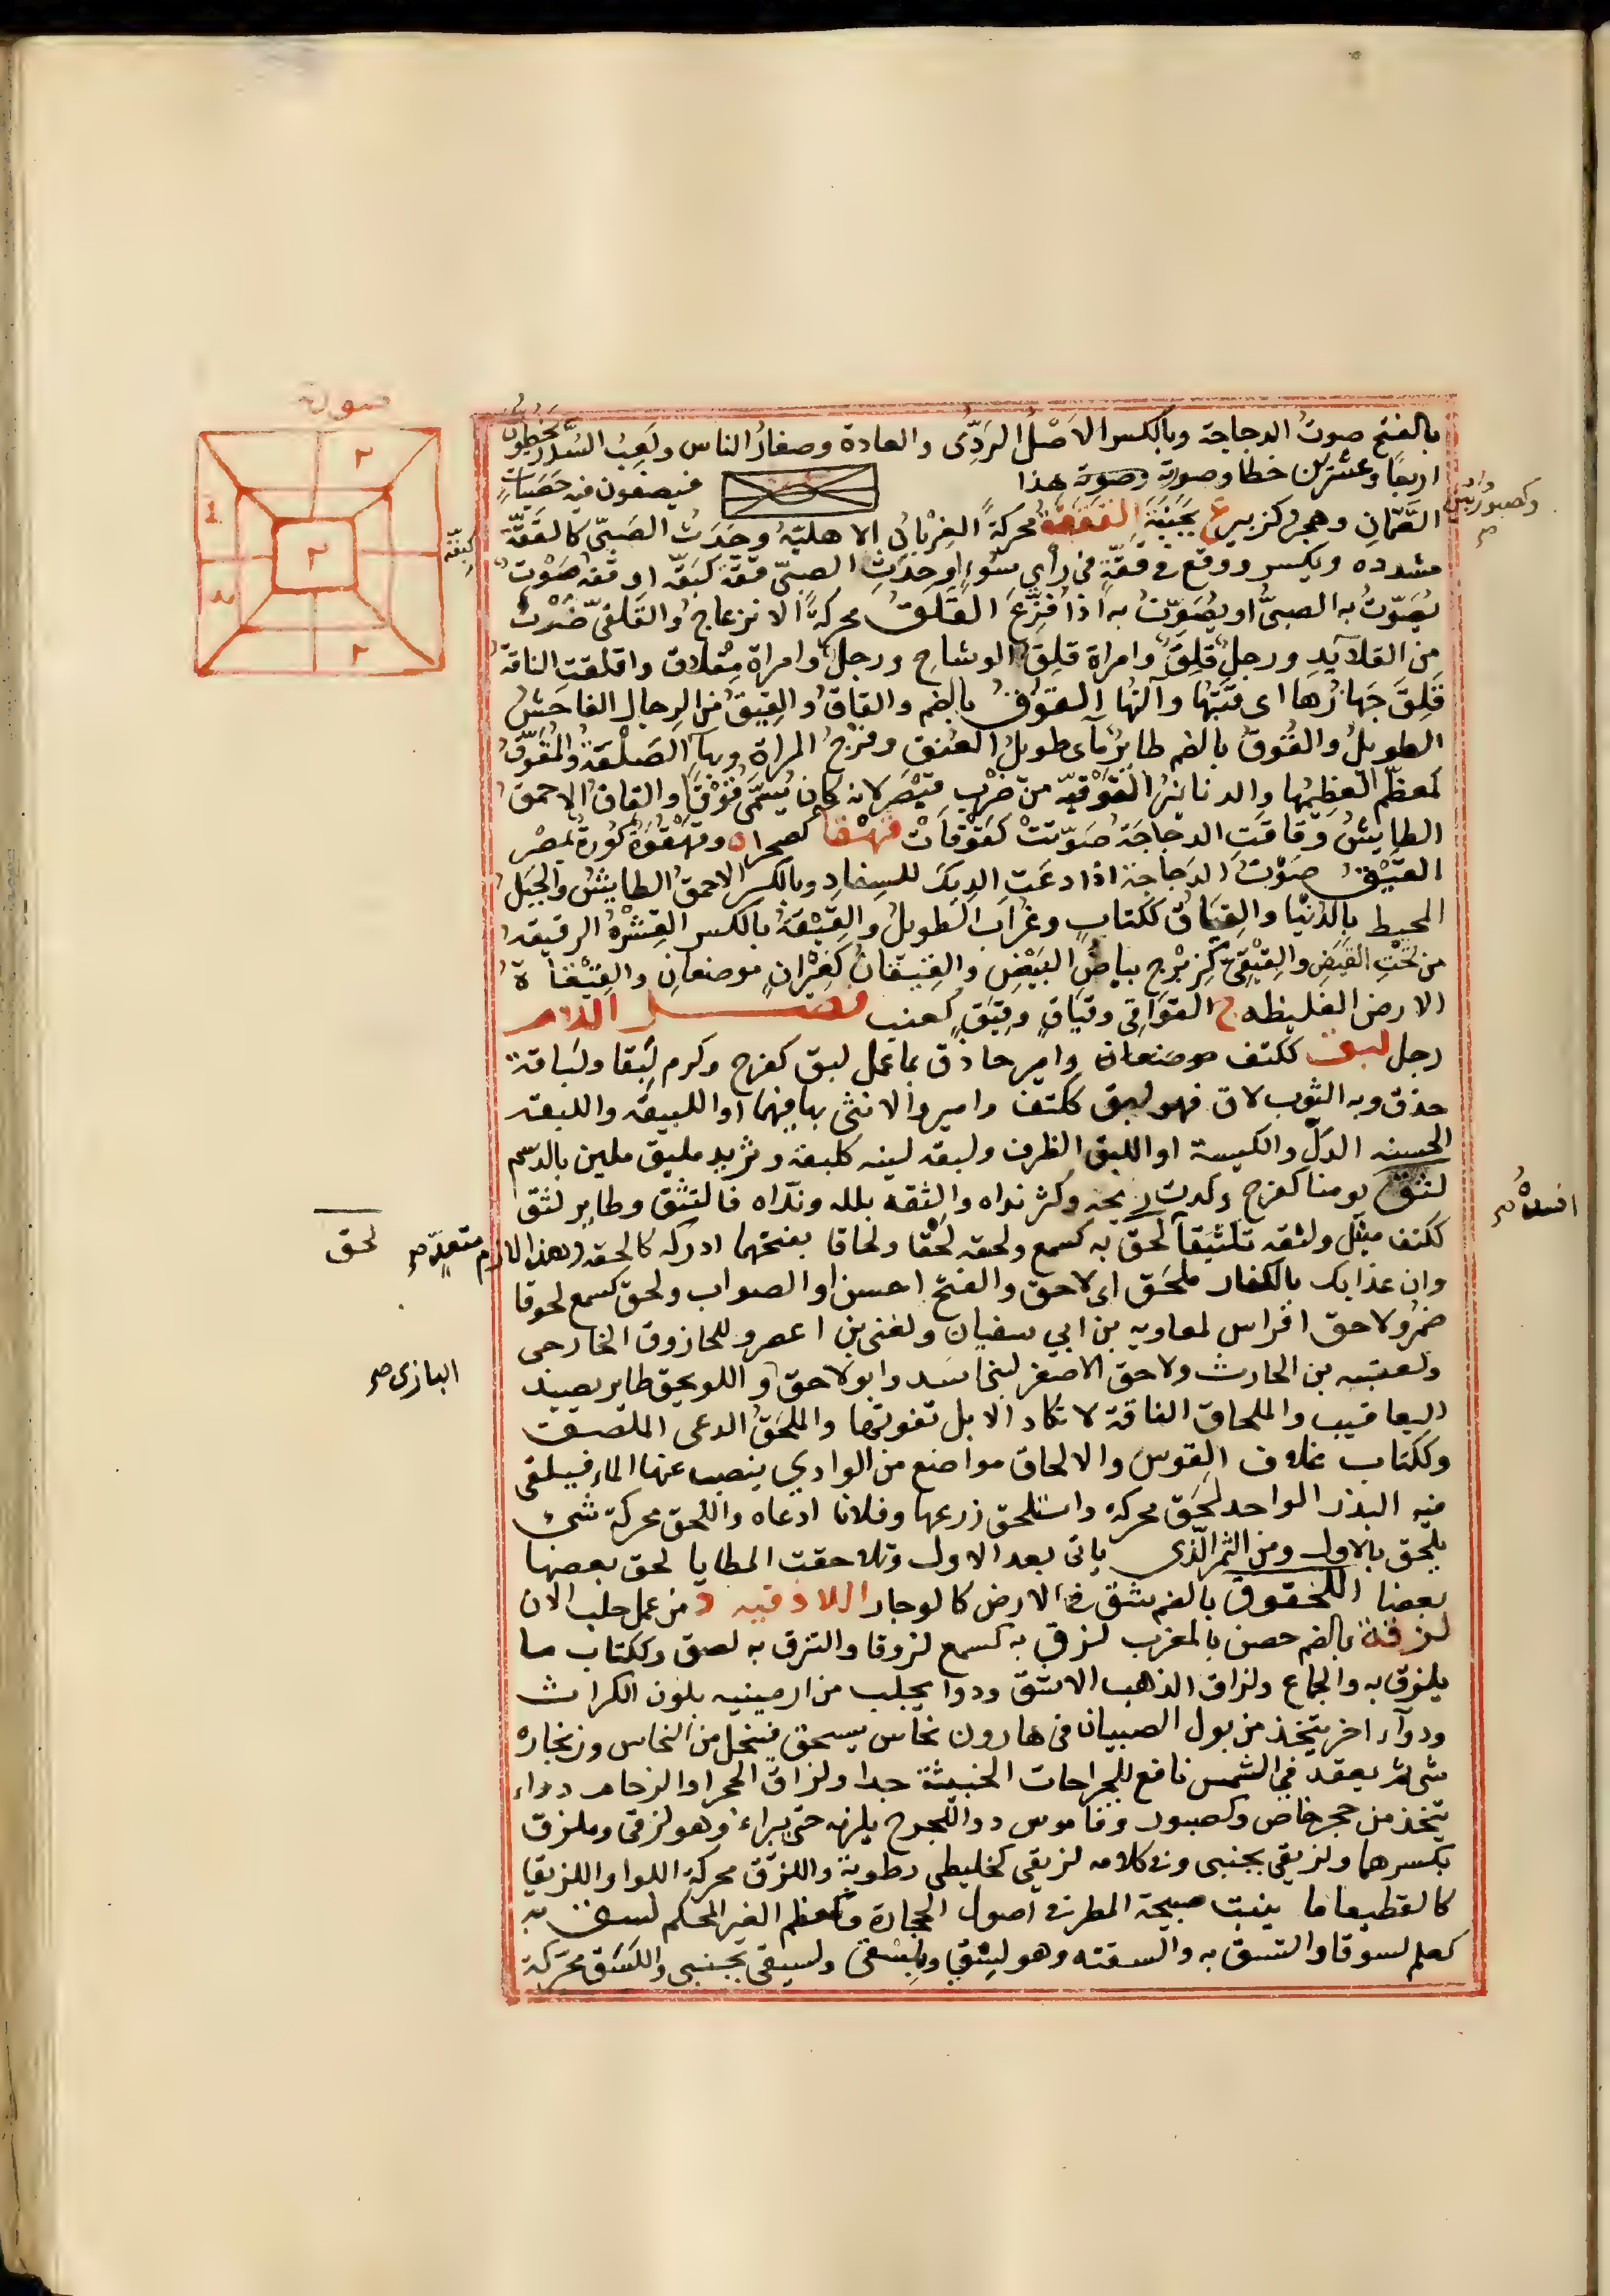 صورته
٢
٢
٢
بالفتح صوتُ الدجاجة وبالكسر الاَصْلُ الرَدِّى والعادة وصغارُ الناس ولَعِبُ السُدَّر يَخُطّون
اربعًا وعشرين خطا وصورته وصورته هذا فيصفون فيه حَصَيَاتٍ
القَمّان وهجر كزبير ع بجَنَبَةَ القَقَقَةُ محركةً الغِرْبانُ الاهليّة وحَدَثُ الصَبىّ كالقَقّة
مشدده ويكسر ووقع فى قِقّةٍ فى رأى سُوءٍ او حدث الصبىّ قِقّة كبَقّه او قِقه صَوْتٌ
يُصَوّتُ به الصبىُّ او يُصَوَّتُ به اذا فُزِّعَ القَلَقُ محركةً الانزعاج والقَلَقىّ ضَرْبٌ
من القلآيد ورجل قَلِقٌ وامراة قلِقُ الوشاح ورجل وامراة مِقْلاق واقلقتِ الناقةُ
قَلِقَ جَهازُها اى قَتَبُها وآلتُها القوقُ بالضم والقاقُ والقِيقُ من الرجال الفاحشُ
الطويلُ والقُوقُ بالضم طايرٌ مآى طويلُ العُنق وفَرْجُ المراة وبهآٍ الصَلْعَةُ والمُقَوَّقُ
كمعظّم العَظِيمُها والدنانيرُ القُوْقيّه من ضَرْبِ قَيْصَر لانه كان يُسَمَّى قُوْقًا والقاقُ الاحمقُ
الطايشُ وقاقتِ الدجاجَة صَوّتتْ كقَوْقَأتْ قَهْقا كصحراه وقَهْقُوَةُ كُورةٌ بمصْر
القَيْقُ صَوْتُ الدَجاجة اذا دعَتِ الدِيكَ للسِفادِ وبالكسر الاحمقُ الطايشُ والجَبَلُ
المحيط بالدُنيا والقِيَاقُ ككتابٍ وغُرَابٍ الطويلُ والقِيْقَةُ بالكسر القِشْرَةُ الرقيقه
من تحْتِ القَيضِ والقِيْقِئُ كزِبْرِج بياضُ البَيْضِ والقِيقانُ كغِيْرانٍ موضعانِ والقِيْقاةُ
الارض الغليظه ج القَوَاقِى وقِيَاقٍ وقِيَقٌ كعنب فصل اللام
رجل لبق ككتف موضعان وامير حاذق بما عمل لبق كفرح وكرم لَبَقا ولَباقة
حذق وبه الثوب لاق فهو لبق ككتف وامير والانثى بها فيهما او اللبيقه واللبقه
الحسنه الدَلّ والكيسة او اللبق الظرف ولبقه لينه كلبقه وثريد ملبق ملين بالدسم
لثق يومنا كفرح ركدت ريحه وكثر نداه والثقه بلله وندّاه فالتثق وطاير لثق
ككتف مبتل ولثقه تلثيقا لحق به كسمع ولحقه لَحْقا ولحاقا بفتحهما ادركه كالحقه وهذا الازم متعدّ صح
وان عذابك بالكفار ملحَق اى لاحق والفتح احسن او الصواب ولحق كسمع لحوقا
ضمر ولاحق افراس لمعاويه بن ابى سفيان ولغنى بن اعصر وللحازوق الخارجى
ولعتيبه بن الحارث ولاحق الاصغر لبنى اسد وابو لاحق واللويحق طاير يصيد
اليعاقيب والملحاق الناقة لا تكاد الابل تفوتها والملحَقُ الدعى الملصق
وككتاب غلاف القوس والالحاق مواضع من الوادى ينضب عنها الماء فيلقى
فيه البذر الواحد لحَق محركه واستلحق زرعها وفلانا ادعاه واللحق محركة شئ
يلحق بالاول ومن الثمر الّذى ياتى بعد الاول وتلاحقت المطايا لحق بعضها
بعضا اللخقوق بالضم شق فى الارض كالوجار اللاذقيه د من عمل حلب الان
لزقة بالضم حصن بالمغرب لزق به كسمع لزوقا والتزق به لصق وككتاب ما
يلزق به والجماع ولزاق الذهب الاشق ودوا يجلب من ارمينيه بلون الكراث
ودوآء اخر يتخذ من بول الصبيان فى هاون نحاس يسحق فينحل من النحاس وزنجاره
شى ثم يعقد فى الشمس نافع للجراحات الخبيثة جدا ولزاق الحجر او الرخام دواء
يتخذ من حجر خاص وكصبور وقاموس دوا للجرح يلزمه حتى يبراء وهو لزقى وملزق
بكسرهما ولزيقى بجنبى وفى كلامه لزيقى كخليطى رطوبة واللزَق محركة اللوا واللزيقا
كالقطيعا ما ينبت صبيحة المطر فى اصول الحجارة وكمعظم الغير المحكم لسق به
كعلم لسوقا والتسق به والسقته وهو لِسْقى وبلِسْقى ولسيقى بجنبى واللَسَق محركة
لحق
البازى صح